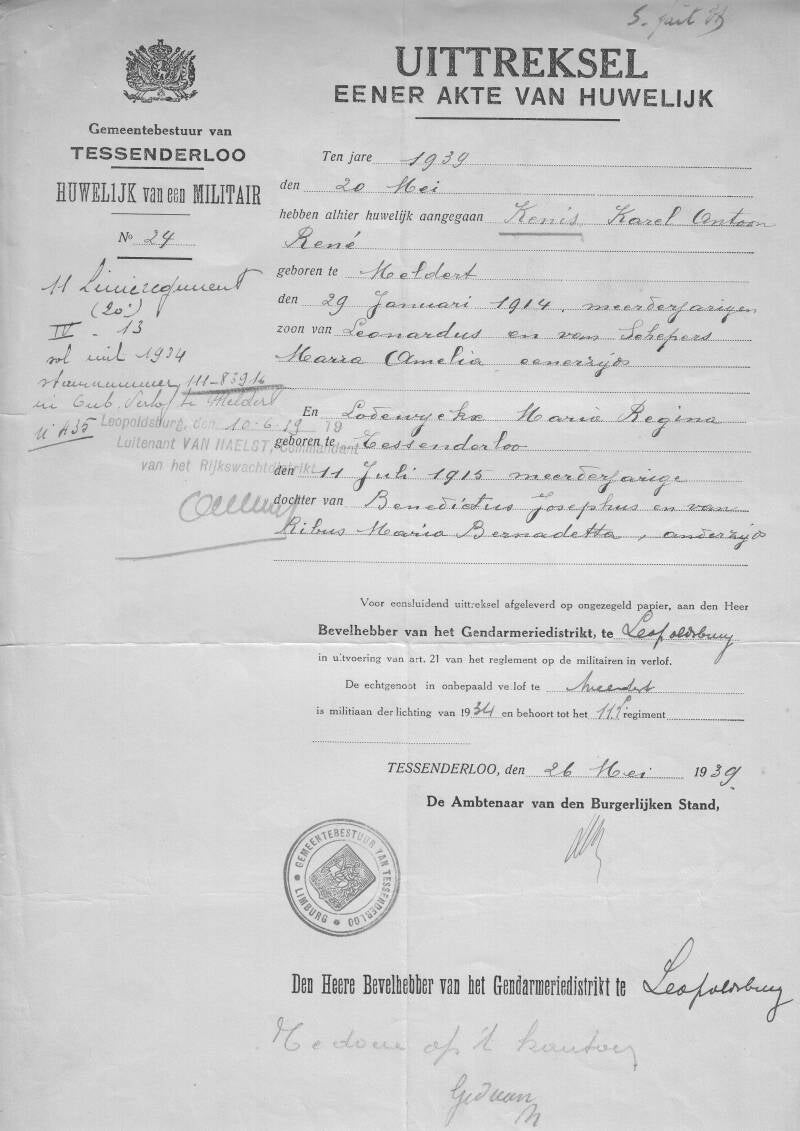 UITTREKSEL
EENER AKTE VAN HUWELIJK
Gemeentebestuur van
TESSENDERLOO
HUWELIJK van een MILITAIR
No 24
11 Linieregiment
IV - 13
1934
stamnummer 111-83916
Leopoldsburg, den 10-6-19 19
Luitenant VAN HAELST, Commandant
van het Rijkswachtdistrikt
Ten jare 1939
den 20 Mei
hebben alhier huwelijk aangegaan Kenis Karel Antoon
René
geboren te Meldert
den 29 Januari 1914, meerderjarigen
zoon van Leonardus en van Schepers
Maria Amelia eenerzijds
En Lodewyckx Maria Regina
geboren te Tessenderloo
den 11 Juli 1915 meerderjarige
dochter van Benedictus Josephus en van
Ribus Maria Bernadetta, anderzijds
Voor eensluidend uittreksel afgeleverd op ongezegeld papier, aan den Heer
Bevelhebber van het Gendarmeriedistrikt, te Leopoldsburg
in uitvoering van art. 21 van het reglement op de militairen in verlof.
De echtgenoot in onbepaald verlof te Meldert
is militiaan der lichting van 1934 en behoort tot het 11e regiment
TESSENDERLOO, den 26 Mei 1939.
De Ambtenaar van den Burgerlijken Stand,
GEMEENTEBESTUUR VAN TESSENDERLOO
LIMBURG
Den Heere Bevelhebber van het Gendarmeriedistrikt te Leopoldsburg
op 't kantoor
Gedaan